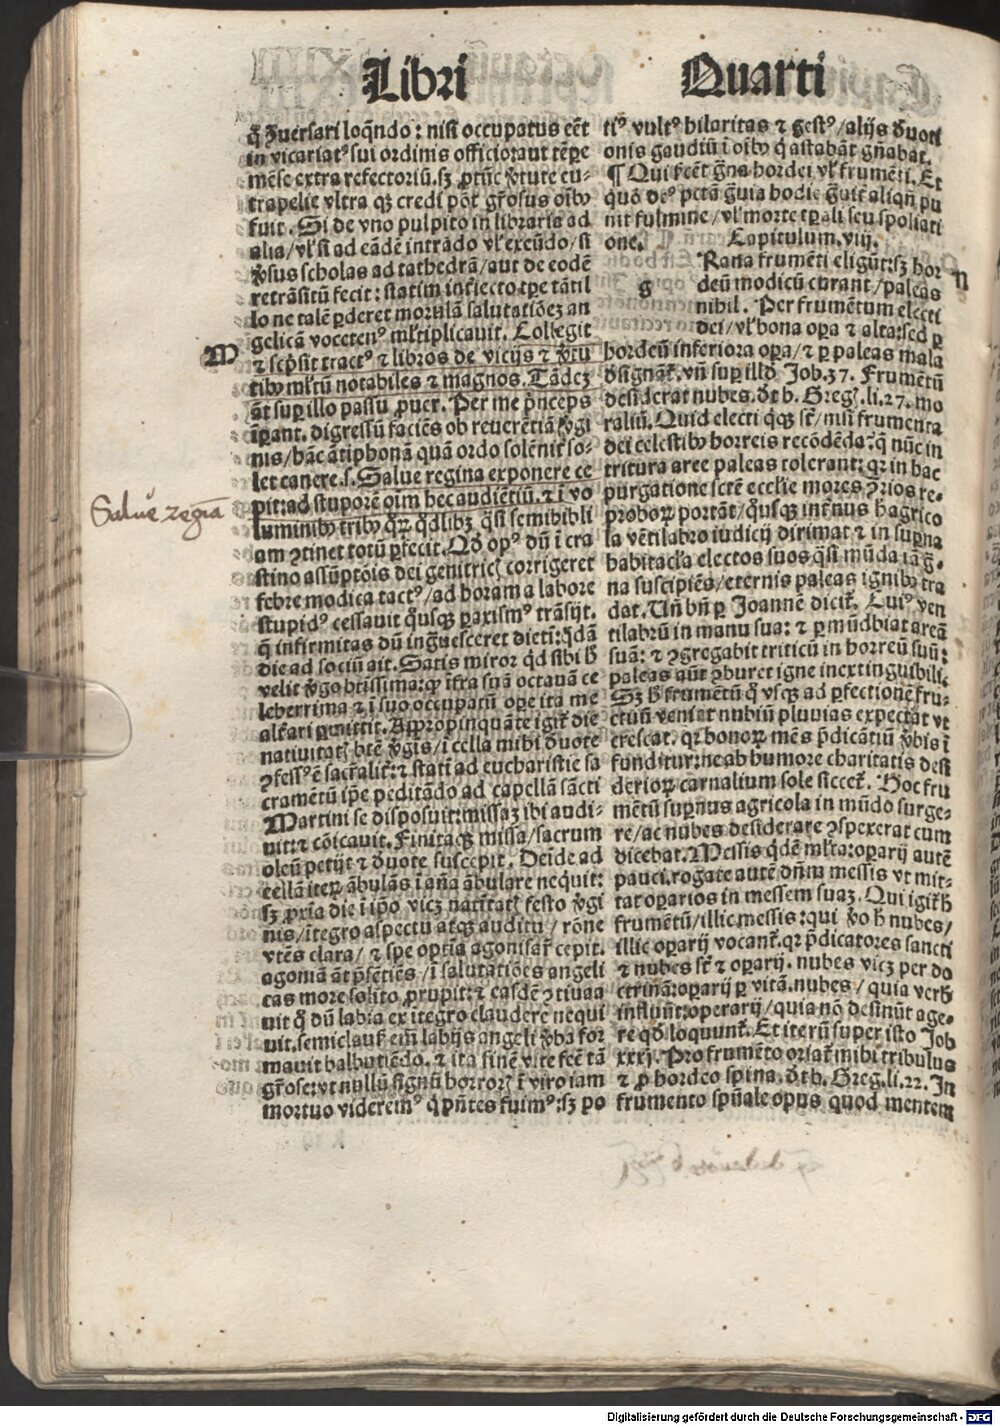 Libri Quarti
q̃ ꝯuersari loq̃ndo : nisi occupatus eēt
in vicariatꝰ sui ordinis officio: aut tēpe
mēse extra refectoriū. sꝫ ꝓtūc ꝟtute eu-
trapelie vltra qꝫ credi pōt gr̄osus oībꝰ
fuit . Si de vno pulpito in libraria ad
alia/ vl' si ad eādē intrādo vl' exeūdo/ si
ꝟsus scholas ad cathedrā/ aut de eodē
retrāsitū fecit : statim iniecto tꝑe tātil
lo ne talē ꝑderet morulā salutatiōeꝫ an
gelicā vocetenꝰ ml'tiplicauit. Collegit
M
⁊ sc̄psit tractꝰ ⁊ libros de vicijs ⁊ ꝟtu
tibꝰ ml'tū notabiles ⁊ magnos. Tādeꝫ
āt sup illo passu ꝓuer. Per me p̄nceps
īꝑant. digressū faciēs ob reuerētiā ꝟgi
nis/ hāc ātiphonā quā ordo solēnit' so-
let canere. s. Salue regina exponere ce
pit: ad stuporē oīm hec audiētiū. ⁊ i vo
Salue regia
luminibꝰ tribꝰ qꝝ q̄dlibꝫ q̄si semibibli
am ꝯtinet totū ꝑfecit. Qd̄ opꝰ dū i cra
stino assūptōis dei genitricꝭ corrigeret
febre modica tactꝰ/ ad horam a labore
stupidꝰ cessauit q̊usqꝫ ꝑaxismꝰ trāsijt.
q̄ infirmitas dū ingͣuesceret dietī: q̄dā
die ad sociū ait. Satis miror q̄d sibi h̄
velit ꝟgo btīssima: ꝙ īfra suā octauā ce
leberrima ⁊ i suo occupatū oꝑe ita me
alt'ari ꝑmittit. Appropinquāte igit' die
natiuitatꝭ btē ꝟgis/ i cella mihi deuote
ꝯfessꝰ ē sac̄ralit': ⁊ statī ad eucharistie sa
cramētū ip̄e peditādo ad capellā sācti
Martini se disposuit: missaꝫ ibi audi-
uit: ⁊ cōicauit. Finitaqꝫ missa/ sacrum
oleū petijt ⁊ deuote suscepit. Deīde ad
cellā iteꝝ ābulās i aña ābulare nequit:
sꝫ ꝓxīa die i ip̄o vicꝫ natītatꝭ festo ꝟgi
nis/ ītegro aspectu atqꝫ auditu / rōne
vtēs clara/ ⁊ spe optīa agonisar̄ cepit.
agoniā āt p̄sētiēs / i salutatiōes angeli
cas more solito ꝓrupit: ⁊ easdē ꝯtinua
uit q̊ dū labia ex ītegro claudere nequi
uit. semiclaus' em̄ labijs angeli ꝟba for
mauit balbutiēdo. ⁊ ita finē vite fec̄ tā
gr̄ose: vt nullū signū horrorꝭ ī viro iam
mortuo viderem꜀ꝰ q̄ p̄ntes fuimꝰ : sꝫ po
tiꝰ vultꝰ hilaritas ⁊ gestꝰ/ alijs deuoti
onis gaudiū i oībꝰ q̄ astabāt gn̄abat.
¶ Qui fec̄ēt gͣna hordei vl' frumēti. Et
quō deꝰ pctā gͣuia hodie gͣuit' aliqn̄ pu
nit fulmine/ vl' morte tꝑali seu spoliati
one. Capitulum. viij.
g Rana frumēti eligūt: sꝫ hor
N
deū modicū curant/ paleas
nihil . Per frumētum electi
dei/ vl' bona oꝑa ⁊ alta: sed ꝑ
hordeū inferiora oꝑa/ ⁊ ꝑ paleas mala
designāt'. vn̄ sup illd̄ Job. 37. Frumētū
desiderat nubes. dt b. Greg. li. 27. mo
raliū. Quid electi q̊qꝫ st̄/ nisi frumenta
dei celestibꝰ horreis recōdēda: q̄ nūc in
tritura aree paleas tolerant: qꝛ in hac
purgatione scr̄e ecclīe mores ꝯrios re-
proboꝝ portāt/ q̊usqꝫ int'nus h agrico
la vētilabro iudicij dirimat ⁊ in suꝑna
habitac̄la electos suos q̄si mūda iā gͣ-
na suscipiēs/ eternis paleas ignibꝰ tra
dat. Vn̄ bn̄ ꝑ Joannē dicit'. Cuiꝰ ven
tilabrū in manu sua: ⁊ ꝑmūdabit areā
suā: ⁊ ꝯgregabit triticū in horreū suū:
paleas aūt ꝯburet igne inextinguibili.
Sꝫ h̄ frumētū q̄ vsqꝫ ad ꝑfectionē fru-
ctuū veniat nubiū pluuias expectat vt
crescat. qꝛ bonoꝝ mēs p̄dicātiū ꝟbis ī
funditur: ne ab humore charitatis desi
derioꝝ carnalium sole siccet'. Hoc fru
mētū suꝑnus agricola in mūdo surge-
re/ ac nubes desiderare ꝯspexerat cum
dicebat. Messis q̄dē ml'ta: oꝑarij autē
pauci. rogate autē dn̄m messis vt mit-
tat oꝑarios in messem suaꝫ. Qui igit' h̄
frumētū/ illic messis: qui ꝟo h̄ nubes/
illic oꝑarij vocant'. qꝛ p̄dicatores sancti
⁊ nubes st̄ ⁊ oꝑarij. nubes vicꝫ per do
ctrinā: oꝑarij ꝑ vitā. nubes / quia verbꝭ
influūt: operarij/ quia nō desinūt age-
re qd̄ loquunt'. Et iterū super isto Job
xxxj. Pro frumēto oriat' mihi tribulus
⁊ ꝓ hordeo spina. dt b. Greg. li. 22. In
frumento spūale opus quod mentem
Digitalisierung gefördert durch die Deutsche Forschungsgemeinschaft - DFG